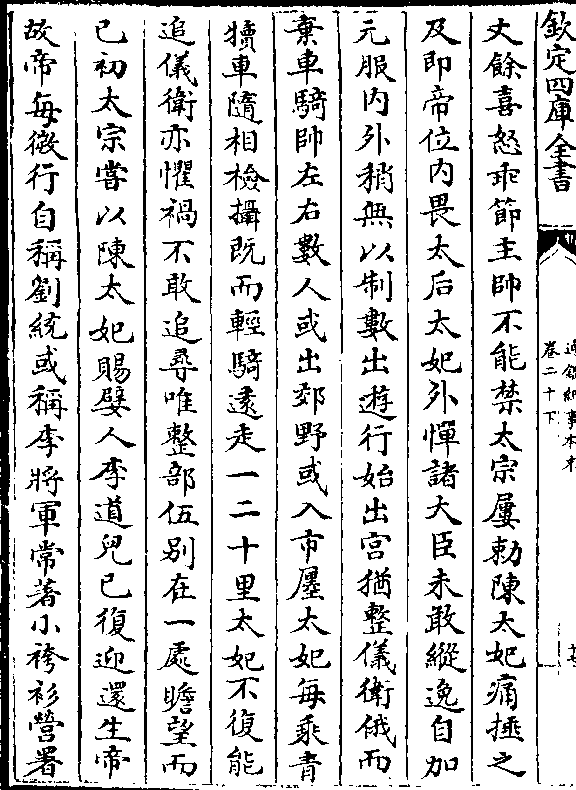 欽定四庫全書
通鑑紀事本末
卷二十下
丈餘喜怒乖節主帥不能禁太宗屢勅陳太妃痛捶之
及即帝位内畏太后太妃外憚諸大臣未敢縱逸自加
元服内外稍無以制數出遊行始出宫猶整儀衛俄而
棄車騎帥左右數人或出郊野或入市廛太妃每乘青
犢車隨相檢攝既而輕騎逺走一二十里太妃不復能
追儀衛亦懼禍不敢追尋唯整部伍别在一處瞻望而
已初太宗嘗以陳太妃賜嬖人李道兒已復迎還生帝
故帝每微行自稱劉統或稱李將軍常著小袴衫營署